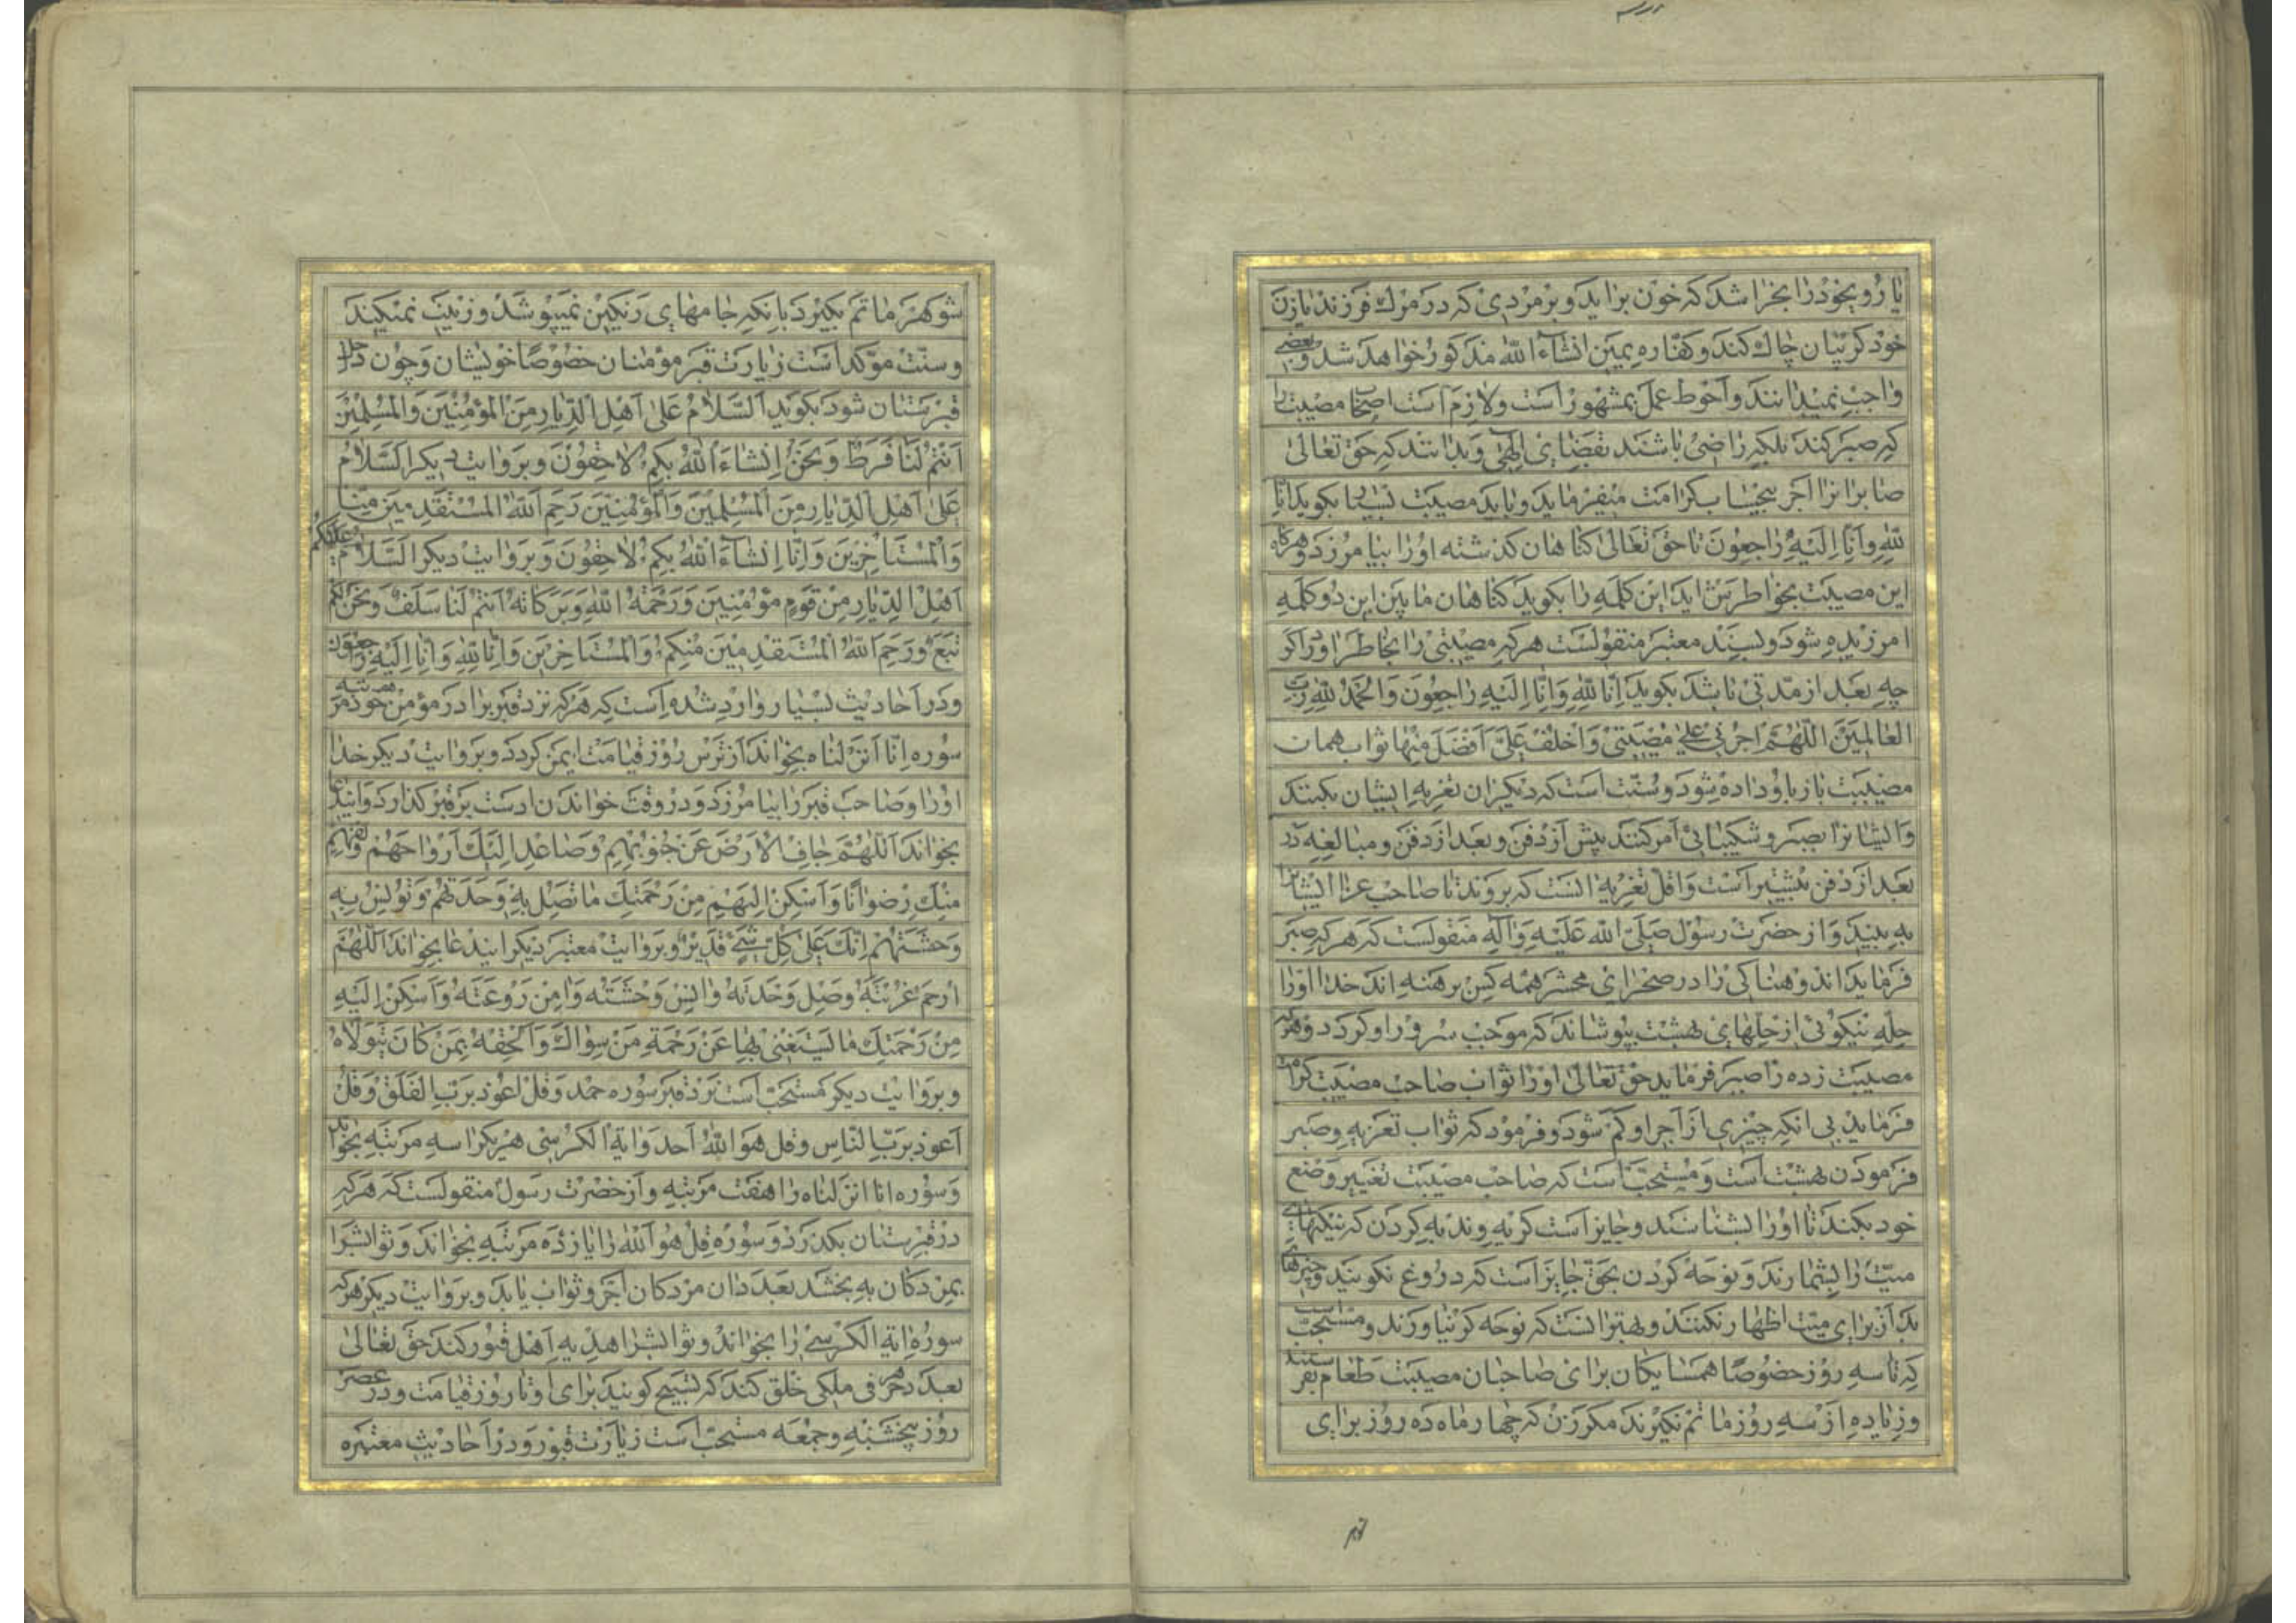 یا روی خود را بخراشد که خون براید و بر مردی که در مرك فرزند یا زن
خود کریبان چاك کند و کفاره یمین انشاء الله مذکور خواهد شد و بعضی
واجب نمیدانند و احوط عمل بمشهور است و لازم است اصحاب مصیبت را
که صبر کند بلکه راضی باشند بقضای الهی و بدانند که حق تعالی
صابرانرا اجر بیحساب کرامت میفرماید و باید مصیبت بسیار بکوید انا
لله وانا الیه راجعون تا حق تعالی کناهان کذشته او را بیامرزد و هرکاه
این مصیبت بخاطرش اید این کلمه را بکوید کناهان ما بین این دو کلمه
امرزیده شود و بسند معتبر منقولست هرکه مصیبتی را بخاطر اورد اکر
چه بعد از مدتی باشد بکوید انا لله وانا الیه راجعون والحمد لله رب
العالمین اللهم اجرنی علی مصیبتی واخلف علی افضل منها ثواب همان
مصیبت باز باو داده شود و سنت است که دیکران تعزیه ایشان بکنند
و ایشانرا بصبر و شکیبائی امر کنند پیش از دفن و بعد از دفن و مبالغه در
بعد از دفن بیشتر است و اقل تعزیه انست که بروند تا صاحب عزا ایشانرا
به بیند و از حضرت رسول صلی الله علیه واله منقولست که هر که صبر
فرماید اندوهناکی را در صحرای محشر همه کس برهنه اند خدا او را
حله نیکوئی از حلهای بهشت بپوشاند که موجب سرور او کردد و هرکه
مصیبت زده را صبر فرماید حق تعالی او را ثواب صاحب مصیبت کرامت
فرماید بی انکه چیزی از اجر او کم شود و فرمود که ثواب تعزیه و صبر
فرمودن بهشت است و مستحب است که صاحب مصیبت تغییر وضع
خود بکند تا او را بشناسند و جایز است کریه و ندبه کردن که نیکیهای
میت را بشمارند و نوحه کردن بحق جایز است که دروغ نکویند و چیزها
بد از برای میت اظهار نکنند و بهتر انست که نوحه کر نیاورند و مستحب است
که تا سه روز خصوصا همسایکان برای صاحبان مصیبت طعام بفرستند
و زیاده از سه روز ماتم نکیرند مکر زن که چهار ماه ده روز برای
شوهر ماتم بکیرد بانکه جامهای رنکین نمیپوشد و زینت نمیکند
و سنت موکد است زیارت قبر مؤمنان خصوصا خویشان و چون داخل
قبرستان شود بکوید السلام علی اهل الدیار من المؤمنین والمسلمین
انتم لنا فرط ونحن انشاء الله بکم لاحقون و بروایت دیکر السلام
علی اهل الدیار من المسلمین والمؤمنین رحم الله المستقدمین منا
والمستاخرین وانا انشاء الله بکم لاحقون و بروایت دیکر السلام علیکم
اهل الدیار من قوم مؤمنین ورحمة الله وبرکاته انتم لنا سلف ونحن لکم
تبع ورحم الله المستقدمین منکم والمستاخرین وانا لله وانا الیه راجعون
و در احادیث بسیار وارد شده است که هرکه نزد قبر برادر مؤمن خود هفت مرتبه
سوره انا انزلناه بخواند از ترس روز قیامت ایمن کردد و بروایت دیکر خدا
او را و صاحب قبر را بیامرزد و در وقت خواندن دست بر قبر کذارد و ایندعا
بخواند اللهم جاف الارض عن جنوبهم وصاعد الیك ارواحهم ولقهم
منك رضوانا واسکن الیهم من رحمتك ما تصل به وحدتهم وتونس به
وحشتهم انك علی کل شیء قدیر و بروایت معتبر دیکر ایندعا بخواند اللهم
ارحم غربته وصل وحدته وانس وحشته وامن روعته واسکن الیه
من رحمتك ما یستغنی بها عن رحمة من سواك والحقه بمن کان یتولاه
و بروایت دیکر مستحب است نزد قبر سوره حمد و قل اعوذ برب الفلق و قل
اعوذ برب الناس و قل هو الله احد و ایة الکرسی هریکرا سه مرتبه بخواند
و سوره انا انزلناه را هفت مرتبه و از حضرت رسول منقولست که هرکه
در قبرستان بکذرد و سوره قل هو الله را یازده مرتبه بخواند و ثوابشرا
بمردکان به بخشد بعدد ان مردکان اجر و ثواب یابد و بروایت دیکر هرکه
سوره ایة الکرسی را بخواند و ثوابشرا هدیه اهل قبور کند حق تعالی
بعدد هر حرفی ملکی خلق کند که تسبیح کویند برای او تا روز قیامت و در عصر
روز پنجشنبه و جمعه مستحب است زیارت قبور و در احادیث معتبره